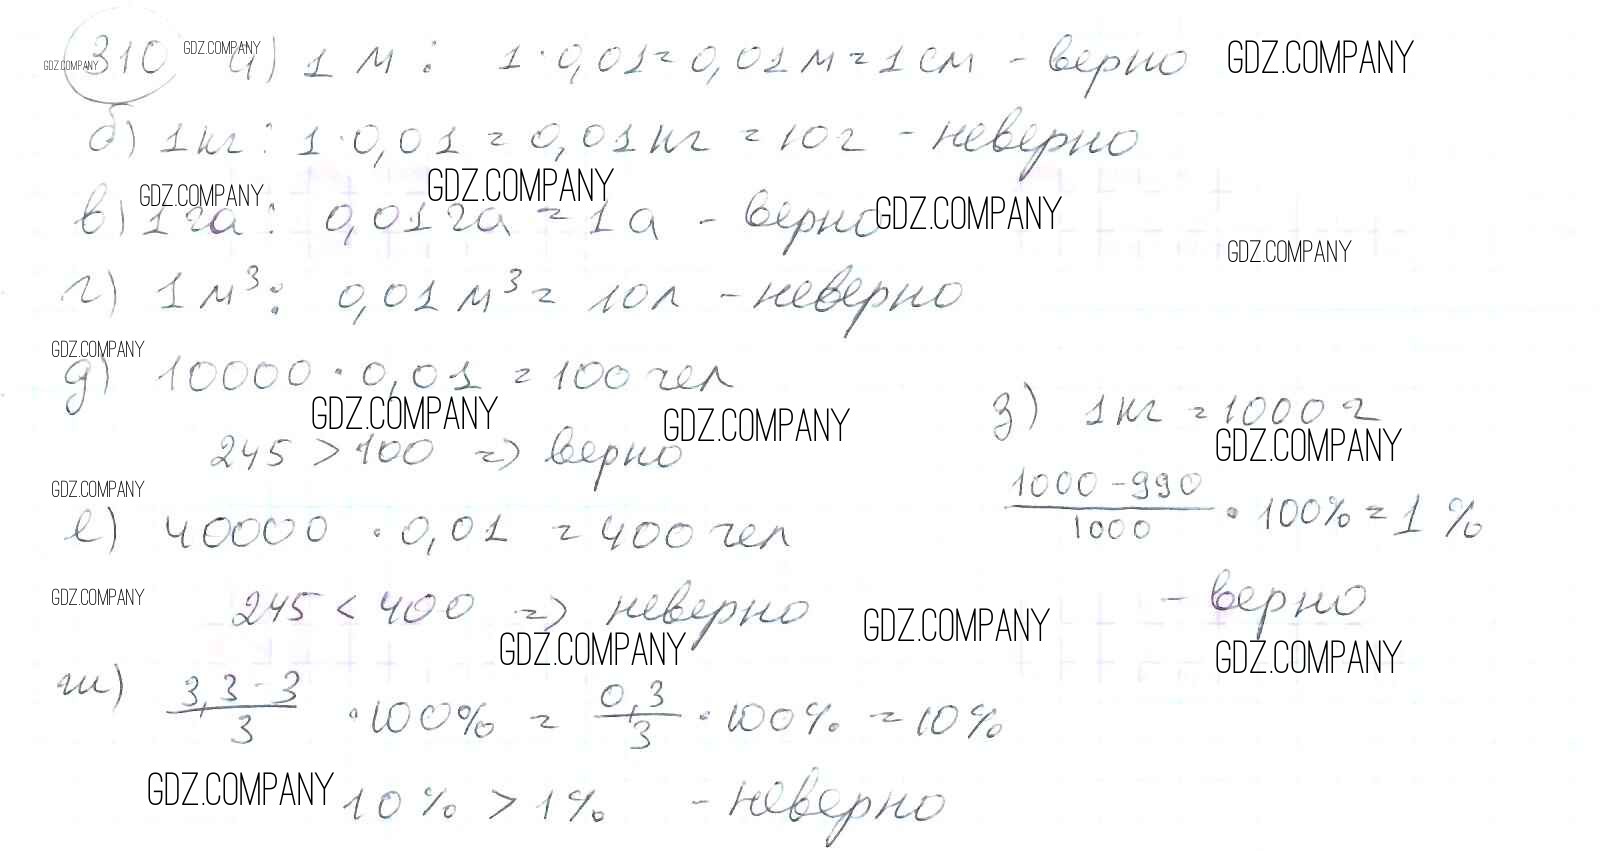 310 GDZ.COMPANY GDZ.COMPANY а) 1 м : 1 · 0,01 = 0,01 м = 1 см - верно GDZ.COMPANY
б) 1 кг : 1 · 0,01 = 0,01 кг = 10 г - неверно
GDZ.COMPANY GDZ.COMPANY GDZ.COMPANY
в) 1 га : 0,01 га = 1 а - верно
GDZ.COMPANY
г) 1 м³ : 0,01 м³ = 10 л - неверно
GDZ.COMPANY
д) 10000 · 0,01 = 100 чел
GDZ.COMPANY GDZ.COMPANY
245 > 100 => верно
GDZ.COMPANY
е) 40000 · 0,01 = 400 чел
GDZ.COMPANY
245 < 400 => неверно
GDZ.COMPANY GDZ.COMPANY
ж) 3,3 - 3 / 3 · 100% = 0,3 / 3 · 100% = 10%
GDZ.COMPANY 10% > 1% - неверно
з) 1 кг = 1000 г
GDZ.COMPANY
1000 - 990 / 1000 · 100% = 1 %
- верно
GDZ.COMPANY